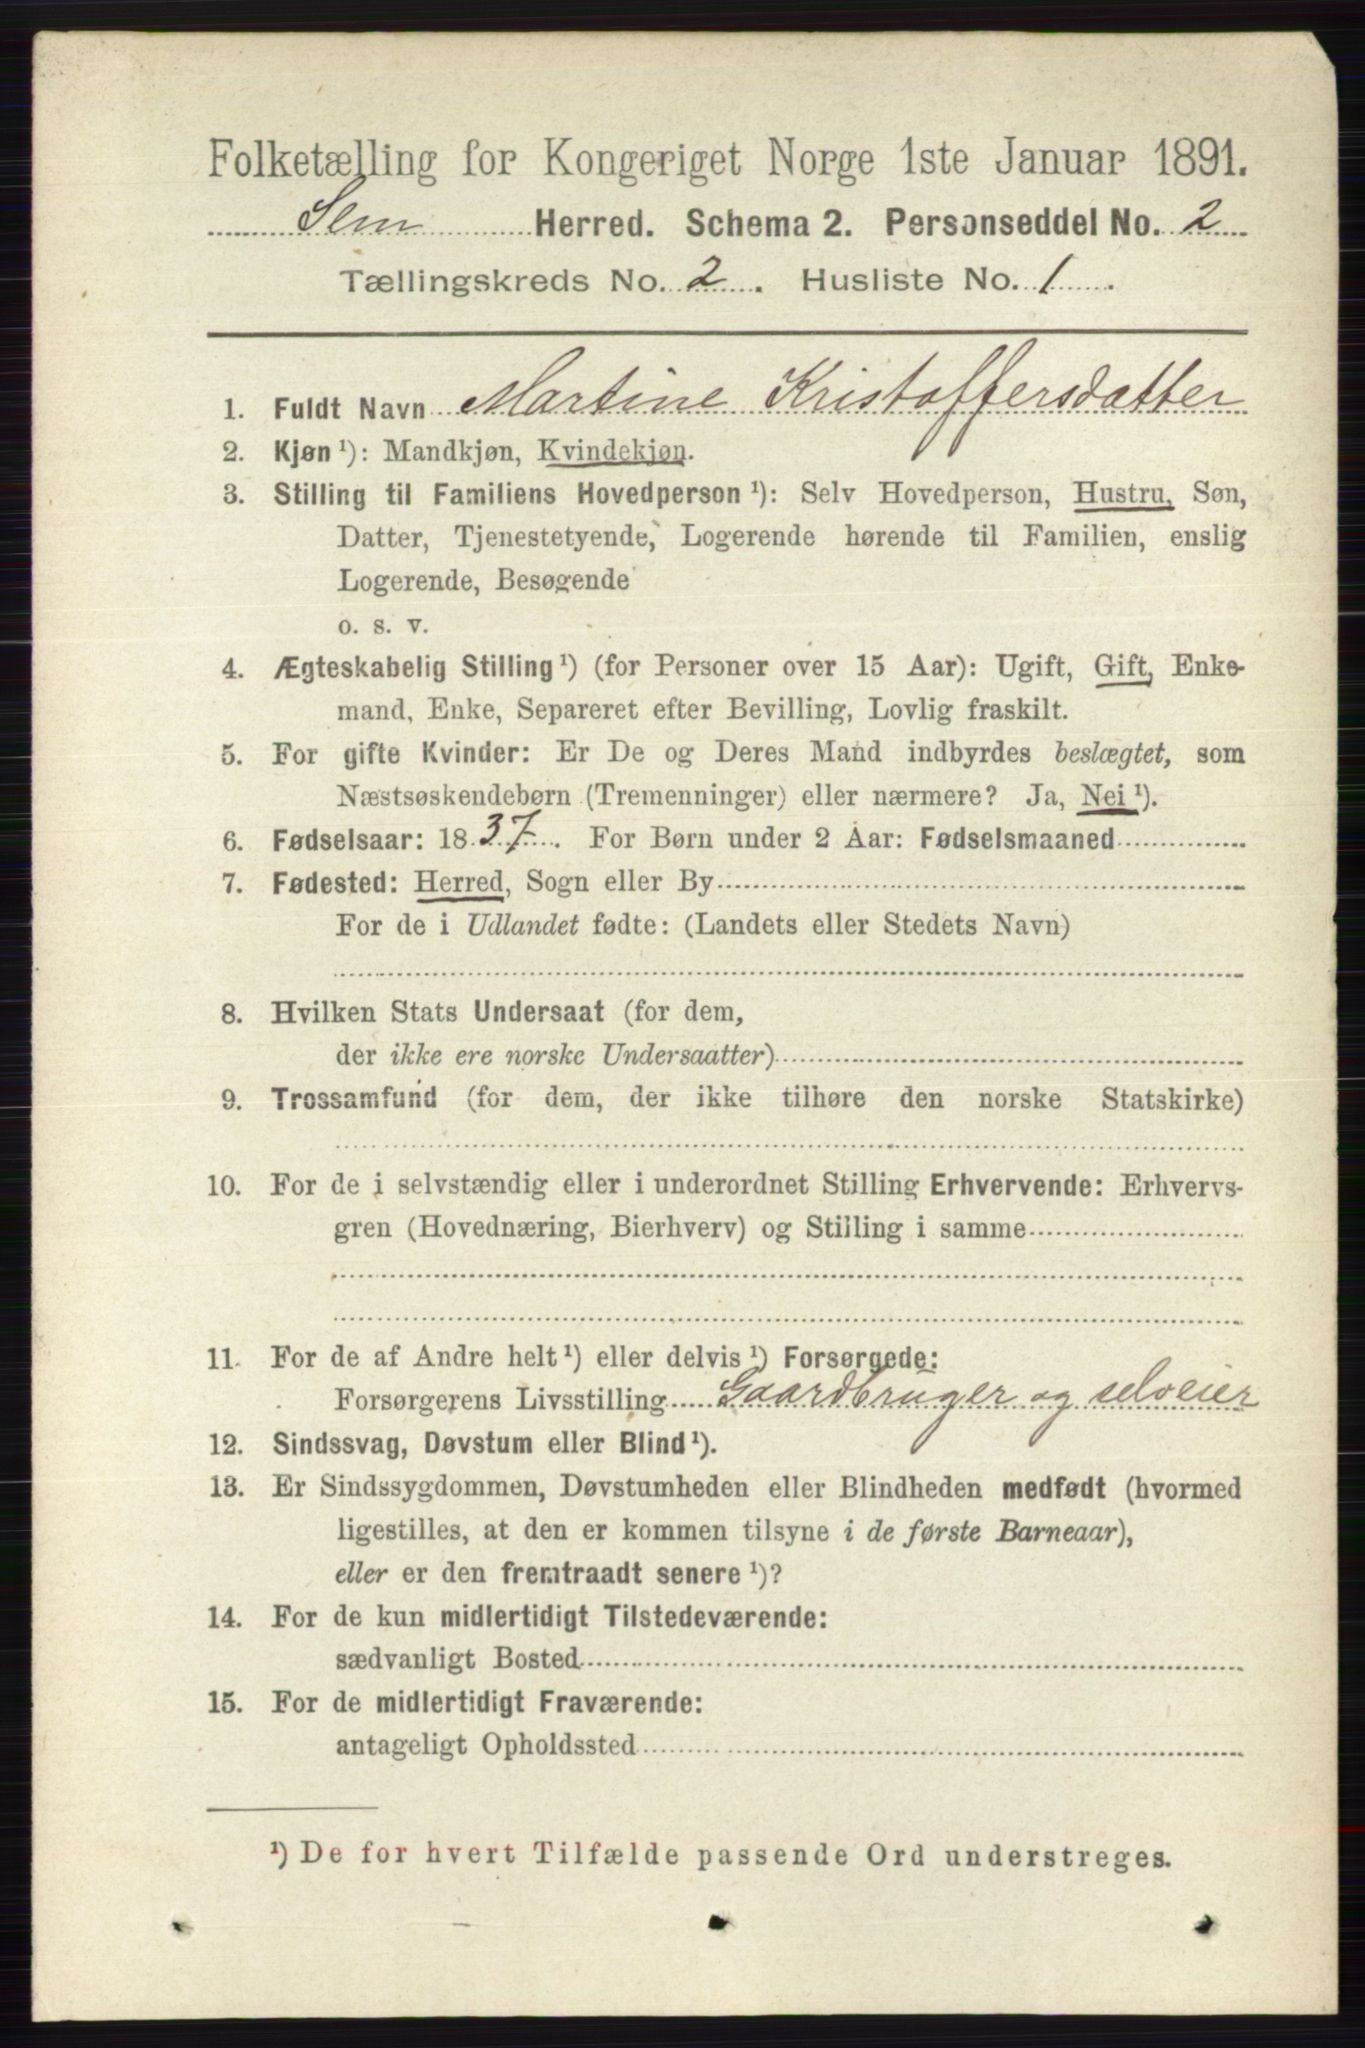 Folketælling for Kongeriget Norge 1ste Januar 1891.
Sem Herred. Schema 2. Personseddel No. 2
Tællingskreds No. 2. Husliste No. 1.
1. Fuldt Navn Martine Kristoffersdatter
2. Kjøn ¹): Mandkjøn, Kvindekjøn.
3. Stilling til Familiens Hovedperson ¹): Selv Hovedperson, Hustru, Søn,
Datter, Tjenestetyende, Logerende hørende til Familien, enslig
Logerende, Besøgende
o. s. v.
4. Ægteskabelig Stilling ¹) (for Personer over 15 Aar): Ugift, Gift, Enke-
mand, Enke, Separeret efter Bevilling, Lovlig fraskilt.
5. For gifte Kvinder: Er De og Deres Mand indbyrdes beslægtet, som
Næstsøskendebørn (Tremenninger) eller nærmere? Ja, Nei ¹).
6. Fødselsaar: 1837. For Børn under 2 Aar: Fødselsmaaned
7. Fødested: Herred, Sogn eller By
For de i Udlandet fødte: (Landets eller Stedets Navn)
8. Hvilken Stats Undersaat (for dem,
der ikke ere norske Undersaatter)
9. Trossamfund (for dem, der ikke tilhøre den norske Statskirke)
10. For de i selvstændig eller i underordnet Stilling Erhvervende: Erhvervs-
gren (Hovednæring, Bierhverv) og Stilling i samme
11. For de af Andre helt ¹) eller delvis ¹) Forsørgede:
Forsørgerens Livsstilling Gaardbruger og selveier
12. Sindssvag, Døvstum eller Blind ¹).
13. Er Sindssygdommen, Døvstumheden eller Blindheden medfødt (hvormed
ligestilles, at den er kommen tilsyne i de første Barneaar),
eller er den fremtraadt senere ¹)?
14. For de kun midlertidigt Tilstedeværende:
sædvanligt Bosted
15. For de midlertidigt Fraværende:
antageligt Opholdssted
¹) De for hvert Tilfælde passende Ord understreges.